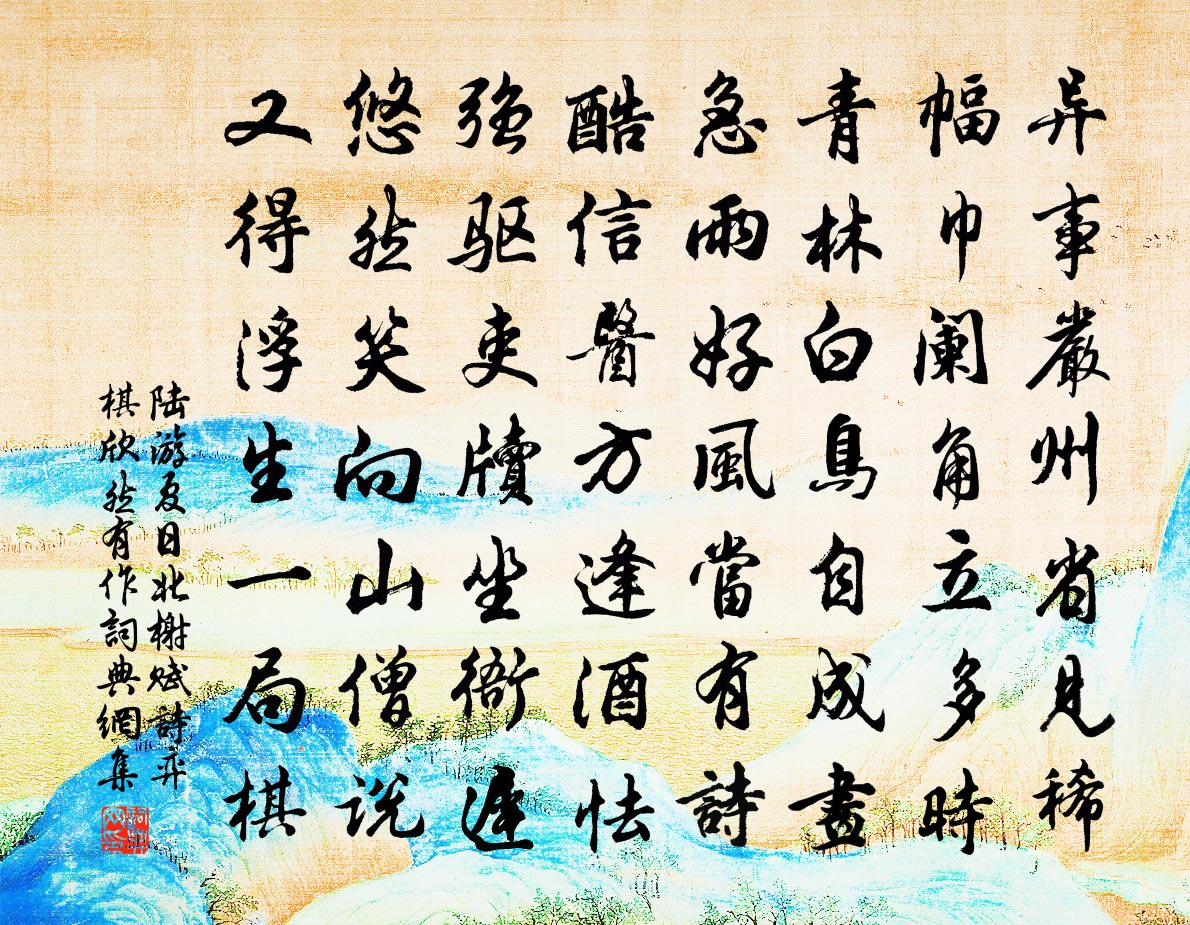 异事嚴州省見稀
幅巾阑角立多時
青林白鳥自成畫
急雨好風當有詩
酷信醫方逢酒怯
强驱吏牘坐衙遲
悠然笑向山僧说
又得浮生一局棋
陆游夏日北榭赋詩弈
棋欣然有作詞典網集